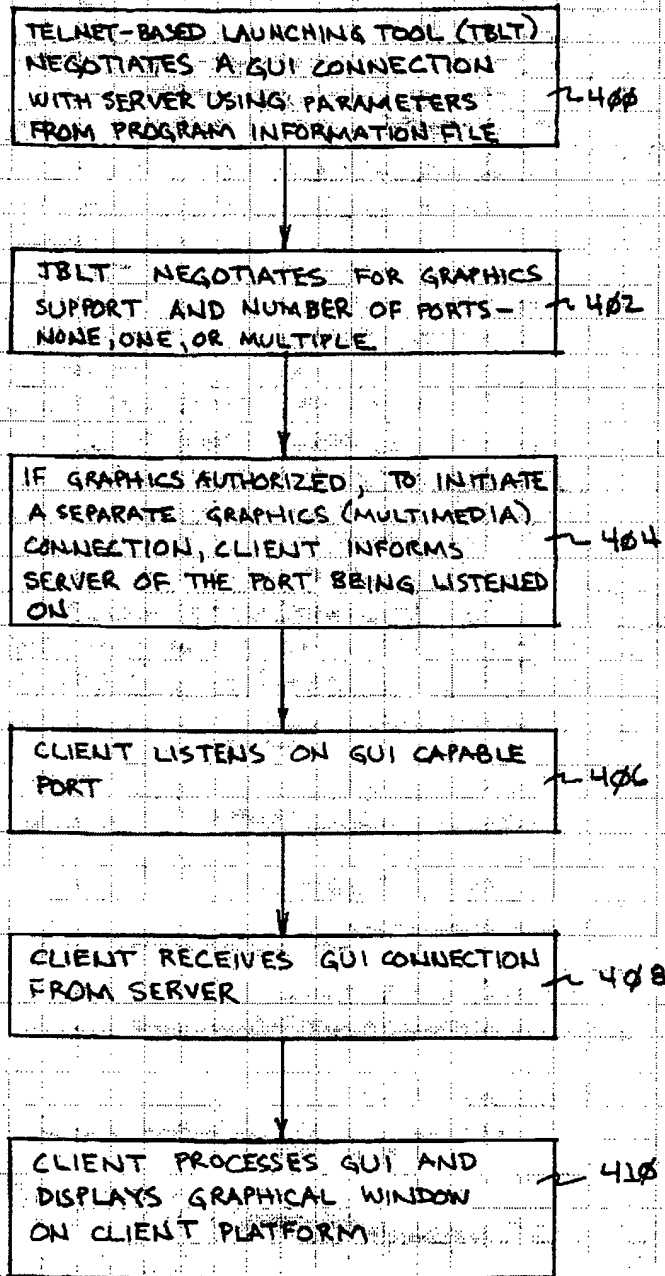 TELNET-BASED LAUNCHING TOOL (TBLT)
NEGOTIATES A GUI CONNECTION
WITH SERVER USING PARAMETERS
FROM PROGRAM INFORMATION FILE
400
TBLT NEGOTIATES FOR GRAPHICS
SUPPORT AND NUMBER OF PORTS-
NONE, ONE, OR MULTIPLE
402
IF GRAPHICS AUTHORIZED, TO INITIATE
A SEPARATE GRAPHICS (MULTIMEDIA)
CONNECTION, CLIENT INFORMS
SERVER OF THE PORT BEING LISTENED
ON
404
CLIENT LISTENS ON GUI CAPABLE
PORT
406
CLIENT RECEIVES GUI CONNECTION
FROM SERVER
408
CLIENT PROCESSES GUI AND
DISPLAYS GRAPHICAL WINDOW
ON CLIENT PLATFORM
410